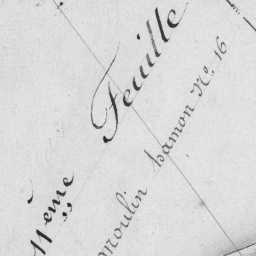 11ème Feuille
moulin hamon No. 16